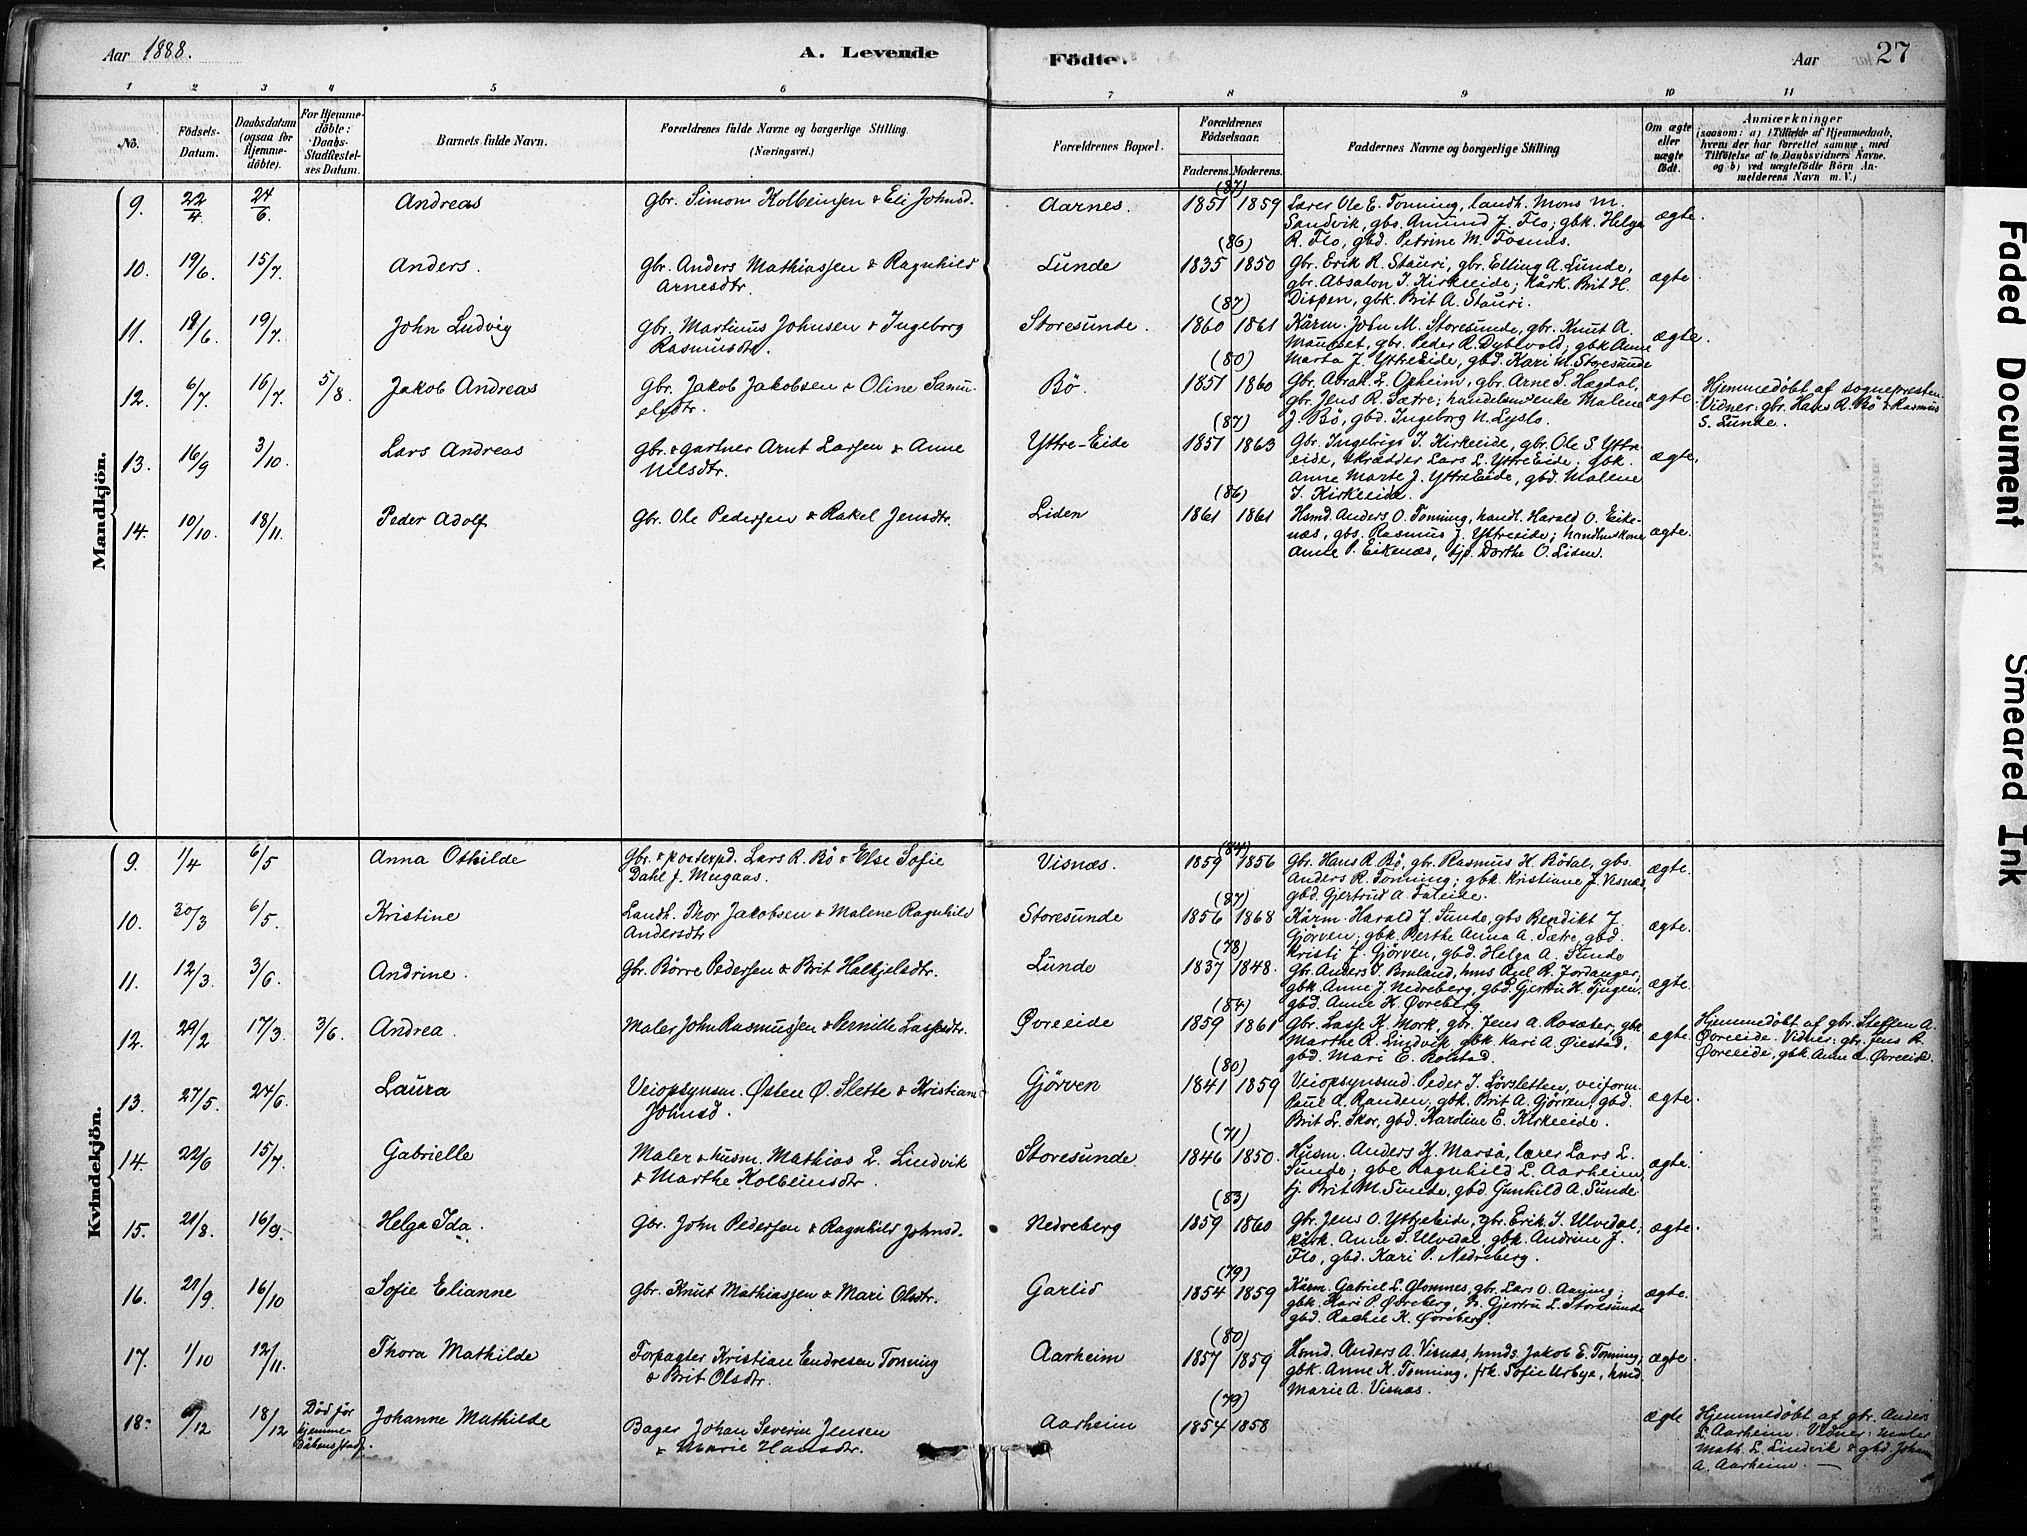 Aar 1888.
A. Levende
Födte.
Aar
27
1 2 3 4 5 6 7 8 9 10 11
No.
Födsels-
Datum.
Daabsdatum
(ogsaa for
Hjemme-
döbte).
For Hjemme-
döbte:
Daabs-
Stadfæstel-
ses Datum.
Barnets fulde Navn.
Forældrenes fulde Navne og borgerlige Stilling.
(Næringsvei.)
Forældrenes Bopæl.
Forældrenes
Födselsaar.
Faderens. Moderens.
Faddernes Navne og borgerlige Stilling
Om ægte
eller
uægte
födt.
Anmærkninger
(saasom: a) i Tilfælde af Hjemmedaab,
hvem der har forrettet samme, med
Tilföielse af to Daabsvidners Navne.
og b) ved uægtefödte Börn An-
melderens Navn m. V.)
Mandkjön.
9. 22/4 24/6 Andreas gbr. Simon Kolbeinsen & Eli Johnsd. Aarnes. (87) 1851 1859 Lærer Ole E. Tonning, landh. Mons M.
Sandvik, gbs. Amund J. Flo, gbk. Helga
R. Flo, gbd. Petrine M. Fosnes. ægte.
10. 19/6 15/7 Anders. Gbr. Anders Mathiassen & Ragnhild
Arnesdtr. Lunde (86) 1835 1850 Gbr. Erik R. Stauri, gbr. Elling A. Lunde,
gbr. Absalon I. Kirkeeide; kårk. Brit H.
Dispen, gbk. Brit A. Stauri. ægte
11. 18/6 19/7 John Ludvig Gbr. Martinus Johnsen & Ingeborg
Rasmusdtr. Storesunde. (87) 1860 1861 Kårm. John M. Storesunde, gbr. Knut A.
Mauset, gbr. Peder R. Dybevold; gbk Anne
Marta J. YttreEide, gbd. Kari M. Storesunde ægte.
12. 6/7 16/7 5/8 Jakob Andreas Gbr. Jakob Jakobsen & Oline Samu-
elsdtr. Bö. (80) 1857 1860 Gbr. Abrah. L. Opheim, gbr. Arne S. Hægdal,
gbr. Jens R. Sætre; handelsm.enke Malene
J. Bö, gbd. Ingeborg N. Lyslo. ægte. Hjemmedöbt af sognepresten.
Vidner: gbr. Hans R. Bö & Rasmus
S. Lunde.
13. 16/9 3/10. Lars Andreas gbr. & gartner Arnt Larsen & Anne
Nilsdtr. Yttre-Eide (87) 1857 1863 Gbr. Ingebrigt I. Kirkeeide, gbr. Ole S. Yttre-
eide, skrædder Lars L. YttreEide; gbk.
Anne Marte J. YttreEide, gbd. Malene
I. Kirkeeide. ægte.
14. 10/10. 18/11. Peder Adolf Gbr. Ole Pedersen & Rakel Jensdtr. Liden (86) 1861 1861 Hsmd. Anders O. Tonning, handl. Harald O. Eike-
næs, gbs. Rasmus J. Yttreeide; handlmskone
Anne P. Eikenæs, tjp. Dorthe O. Liden. ægte.
Kvindekjön.
9. 1/4 6/5 Anna Othilde Gbr. & postexpd. Lars R. Bö & Else Sofie
Dahl f. Meegaas. Visnæs. (84) 1859 1856 Gbr. Hans R. Bö, gbr. Rasmus H. Bödal, gbs.
Anders R. Tonning; gbk. Kristiane J. Visnæs,
gbd. Gjertrud A. Faleide. ægte.
10. 30/3 6/5. Kristine Landh. Thor Jakobsen & Malene Ragnhild
Andersdtr Storesunde (87) 1856 1868 Kårm. Harald J. Sunde, gbs Bendikt J.
Gjörven; gbk. Berthe Anna A. Sætre, gbd.
Kristi J. Gjörven, gbd. Helga A. Sunde ægte.
11. 12/3. 3/6. Andrine. Gbr. Börre Pedersen & Brit Halkjelsdtr. Lunde (78) 1837 1848. Gbr. Anders I. Bruland, hms Axel R. Jordanger,
gbk Anne J. Nedreberg, gbd. Gjertru K. Tjugen,
gbd. Anne K. Øvreberg ægte.
12. 29/2 17/3 3/6. Andrea. Maler John Rasmussen & Pernille Lassesdtr. Øvreeide (84) 1859 1861 Gbr. Lasse K. Mork, gbr. Jens A. Rosæter, gbk
Marthe R. Lindvik, gbk. Kari A. Øiestad,
gbd. Mari E. Bolstad. ægte. Hjemmedöbt af gbr. Steffen A.
Øvreeide. Vidner: gbr. Jens A.
Øvreeide, gbk. Anne A. Øvreeide.
13. 27/5. 24/6. Laura Veiopsynsm. Østen Ø. Slette & Kristiane
Johnsd. Gjörven (80) 1841 1859 Veiopsynsmd. Peder I. Lörsletten, veiform.
Paul A. Randen; gbk. Brit A. Gjörven, gbd.
Brit Lr. Skor, gbd. Karoline E. Kirkeeide. ægte.
14. 22/6 15/7. Gabrielle Maler & husm. Mathias L. Lindvik
& Marthe Kolbeinsdtr. Storesunde (71) 1846 1850. Husm. Anders K. Marså, lærer Lars L.
Sunde; gbe Ragnhild L. Aarheim,
tj. Brit M. Sunde, gbd. Gunhild A. Sunde. ægte.
15. 21/8. 16/9. Helga Ida. Gbr. John Pedersen & Ragnhild Johnsd. Nedreberg (83) 1859 1860 Gbr. Jens O. YttreEide, gbr. Erik I. Ulvedal,
kårk. Anne S. Ulvedal, gbk. Andrine J.
Flo, gbd. Kari P. Nedreberg. ægte.
16. 21/9. 16/10 Sofie Elianne gbr. Knut Mathiassen & Mari Olsdtr. Garlid (79) 1854 1859 Kårm. Gabriel L. Glomnes, gbr. Lars O. Aaning;
gbk. Kari P. Øvreberg, Gjertru L. Storesunde
gbd. Rachel K. Øvreberg. ægte.
17. 1/10 12/11. Thora Mathilde Forpagter Kristian Endresen Tonning
& Brit Olsdtr. Aarheim (80) 1857 1859 Hsmd. Anders A. Visnæs, hmds. Jakob E. Tonning,
gbk. Anne K. Tonning, frk. Sofie Urbye, hmd.
Marie A. Visnæs. ægte.
18. /12 18/12 Död för
hjemme-
dåbens stadf. Johanne Mathilde Bager Johan Severin Jensen
& Marie Hansdtr. Aarheim (79) 1854 1858 ægte Hjemmedöbt af gbr. Anders
L. Aarheim. Vidner: maler
Math. L. Lindvik & gbd. Johanne
A. Aarheim.
Faded Document
Smeared Ink